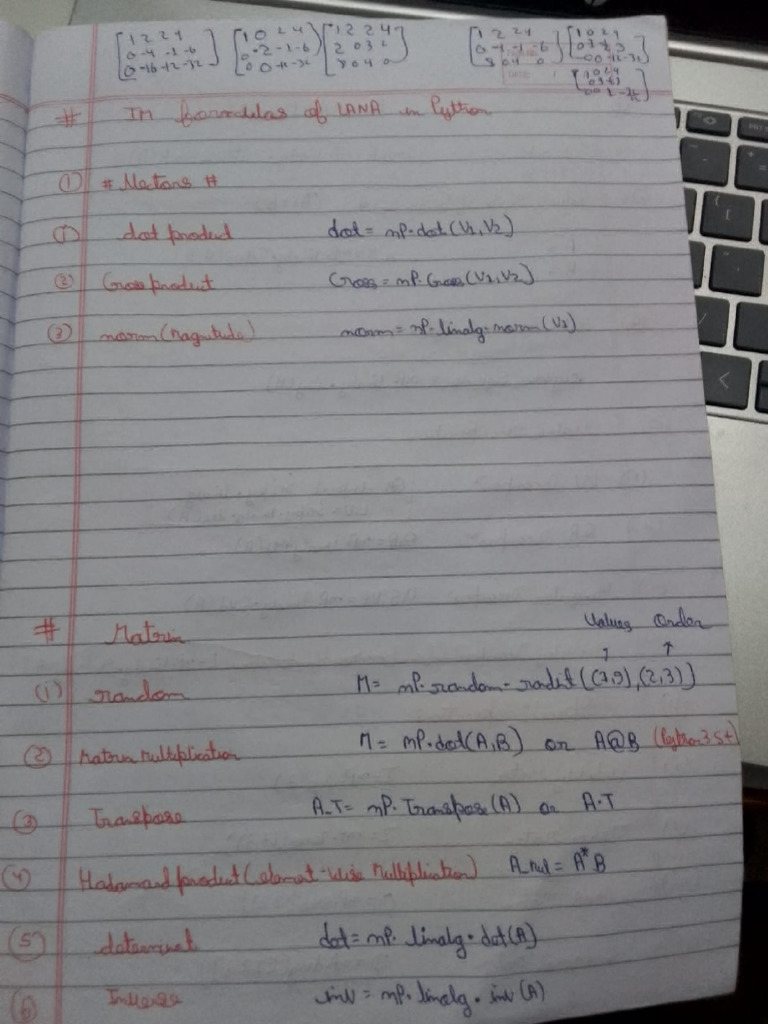 [1 2 2 4 [1 0 2 4 [1 2 2 4 [1 2 2 4 [1 0 2 4
2 0 3 2
8 0 4 0] 8 0 4 0
# IM formulas of LANA in Python
① # Vectors #
① dot product dot = np.dot(V1,V2)
② Cross product Cross = np.Cross(V1,V2)
③ norm (Magnitude) norm = np.linalg.norm(V1)
Values Order
# Matrix ↑ ↑
(1) random M = np.random.randint((1,9),(2,3))
② Matrix Multiplication M = np.dot(A,B) or A@B (Python 3.5+)
③ Transpose A_T = np.Transpose(A) or A.T
④ Hadamard product (element-wise Multiplication) A_mul = A*B
⑤ determinant det = np.linalg.det(A)
⑥ Inverse inv = np.linalg.inv(A)